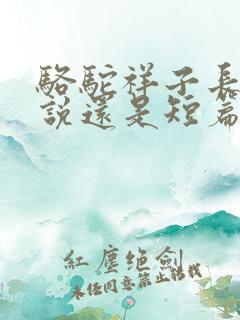 駱駝祥子長
說還是短篇
紅塵绝劍
未经同意禁止轉載